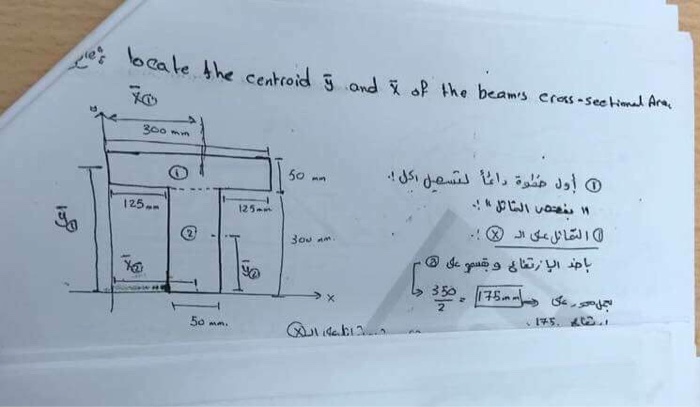 locate the centroid ȳ and x̄ of the beam's cross-sectional Area
x̄①
y
300 mm
①
50 mm
125 mm
125 mm
ȳ①
②
300 mm
x̄②
ȳ②
x
50 mm.
① أول خطوة دائماً لتسهيل الحل :.
" بفحص التماثل " :.
① التماثل على الـ Ⓧ :.
ياخذ الارتفاع و يقسم على ②
350/2 = 175 mm
175.
الـ Ⓧ